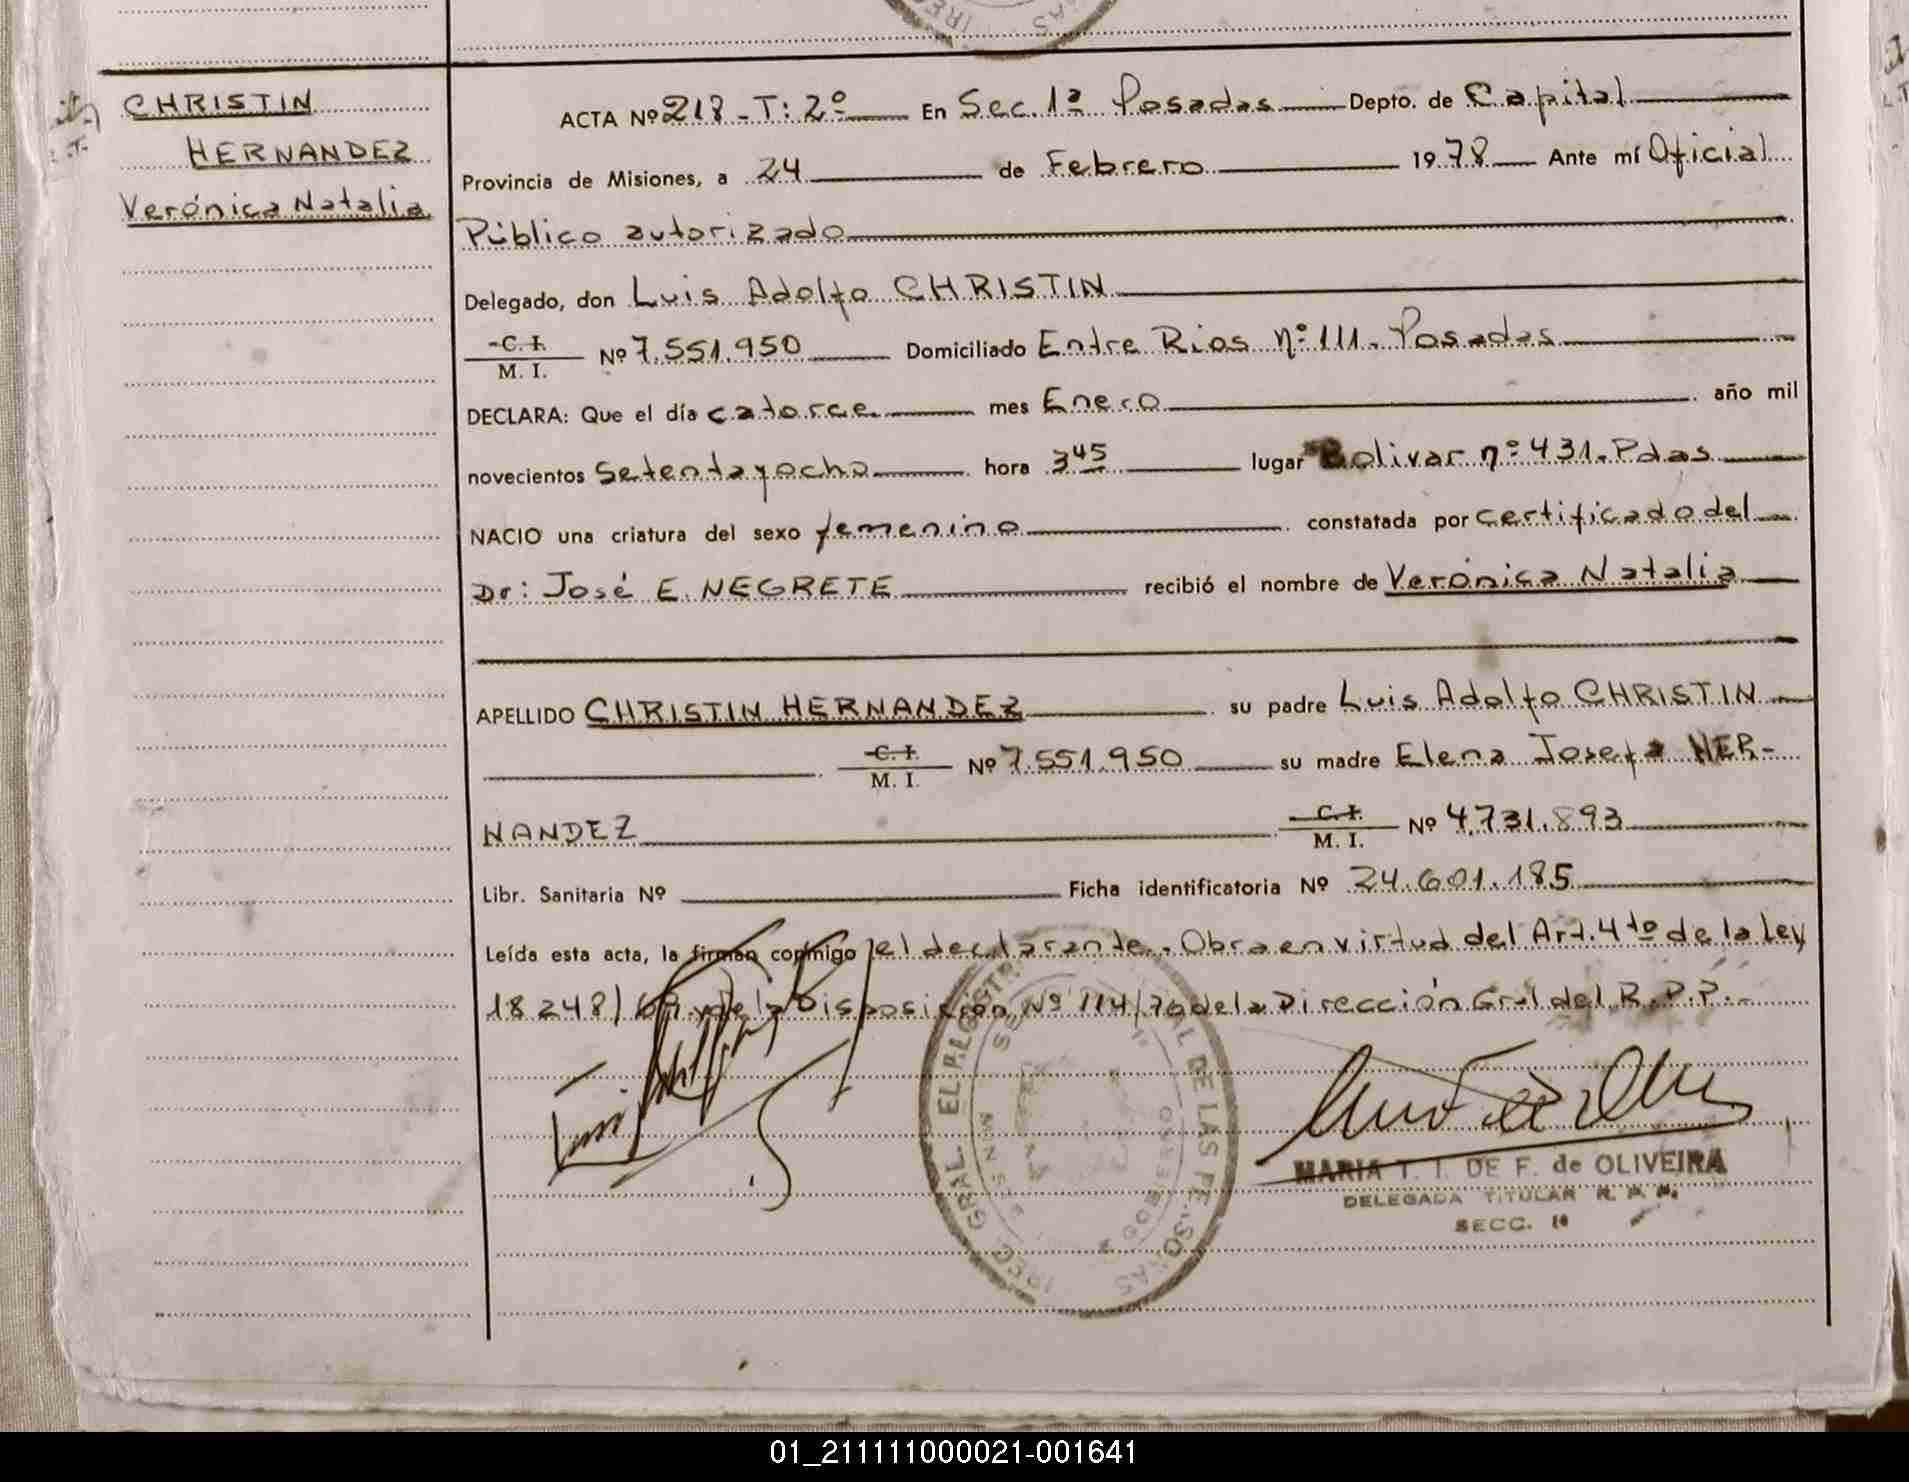 CHRISTIN
HERNANDEZ
Verónica Natalia
ACTA Nº 218 - T: 2º En Sec. 1ª Posadas Depto. de Capital
Provincia de Misiones, a 24 de Febrero 1978 Ante mí Oficial
Público autorizado
Delegado, don Luis Adolfo CHRISTIN
C. I.
M. I. Nº 7.551.950 Domiciliado Entre Rios nº 111. Posadas
DECLARA: Que el día catorce mes Enero año mil
novecientos setenta y ocho hora 3 45 lugar Bolivar nº 431. Pdas
NACIO una criatura del sexo femenino constatada por certificado del
Dr: José E. NEGRETE recibió el nombre de Verónica Natalia
APELLIDO CHRISTIN HERNANDEZ su padre Luis Adolfo CHRISTIN
C. I.
M. I. Nº 7.551.950 su madre Elena Josefa HER-
NANDEZ C. I.
M. I. Nº 4.731.893
Libr. Sanitaria Nº Ficha identificatoria Nº 24.601.185
Leída esta acta, la firman conmigo el declarante. Obra en virtud del Art. 4to de la Ley
18248/69 y de la Disposición Nº 114/70 de la Dirección Gral del R.P.P.-
MARIA T. I. DE F. de OLIVEIRA
DELEGADA TITULAR
SECC. 1ª
01_211111000021-001641